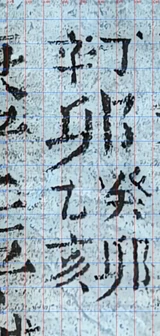 丁卯癸卯
辛卯乙亥